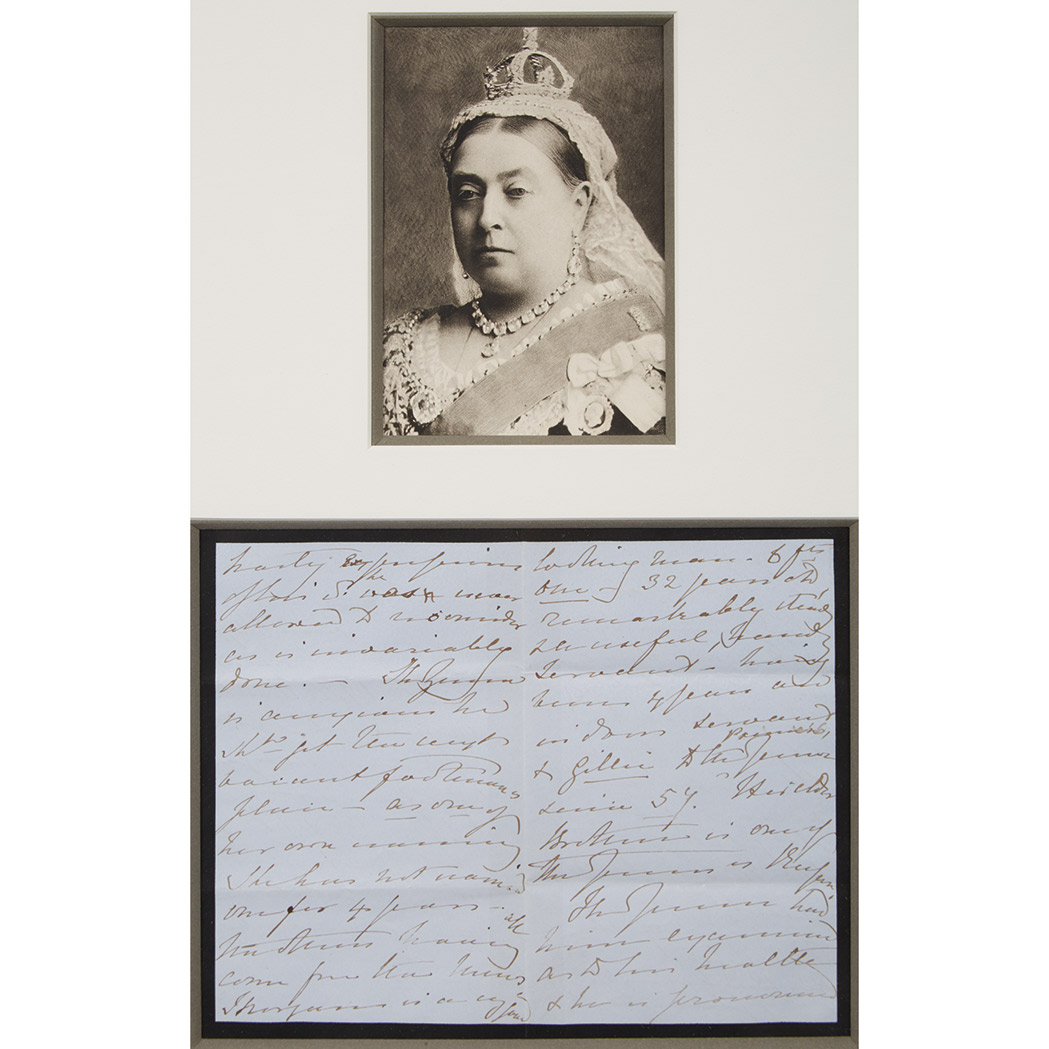 hasty expressions
of his S. he was never
allowed to reconsider
as is invariably
done. — The Queen
is anxious he
shd get the next
vacant footman's
place — as one of
her own naming
She has not named
one for 4 years — all
the others having
come from the Mews
is a very fine
looking man — 6 ft
one — 32 years old,
remarkably steady
a useful, handy
servant — having
been 4 years an
indoor servant
& Gillie to the Prince's,
since 57. His elder
Brother is one of
the Queen's
The Queen had
him examined
as to his health
& he is pronounced